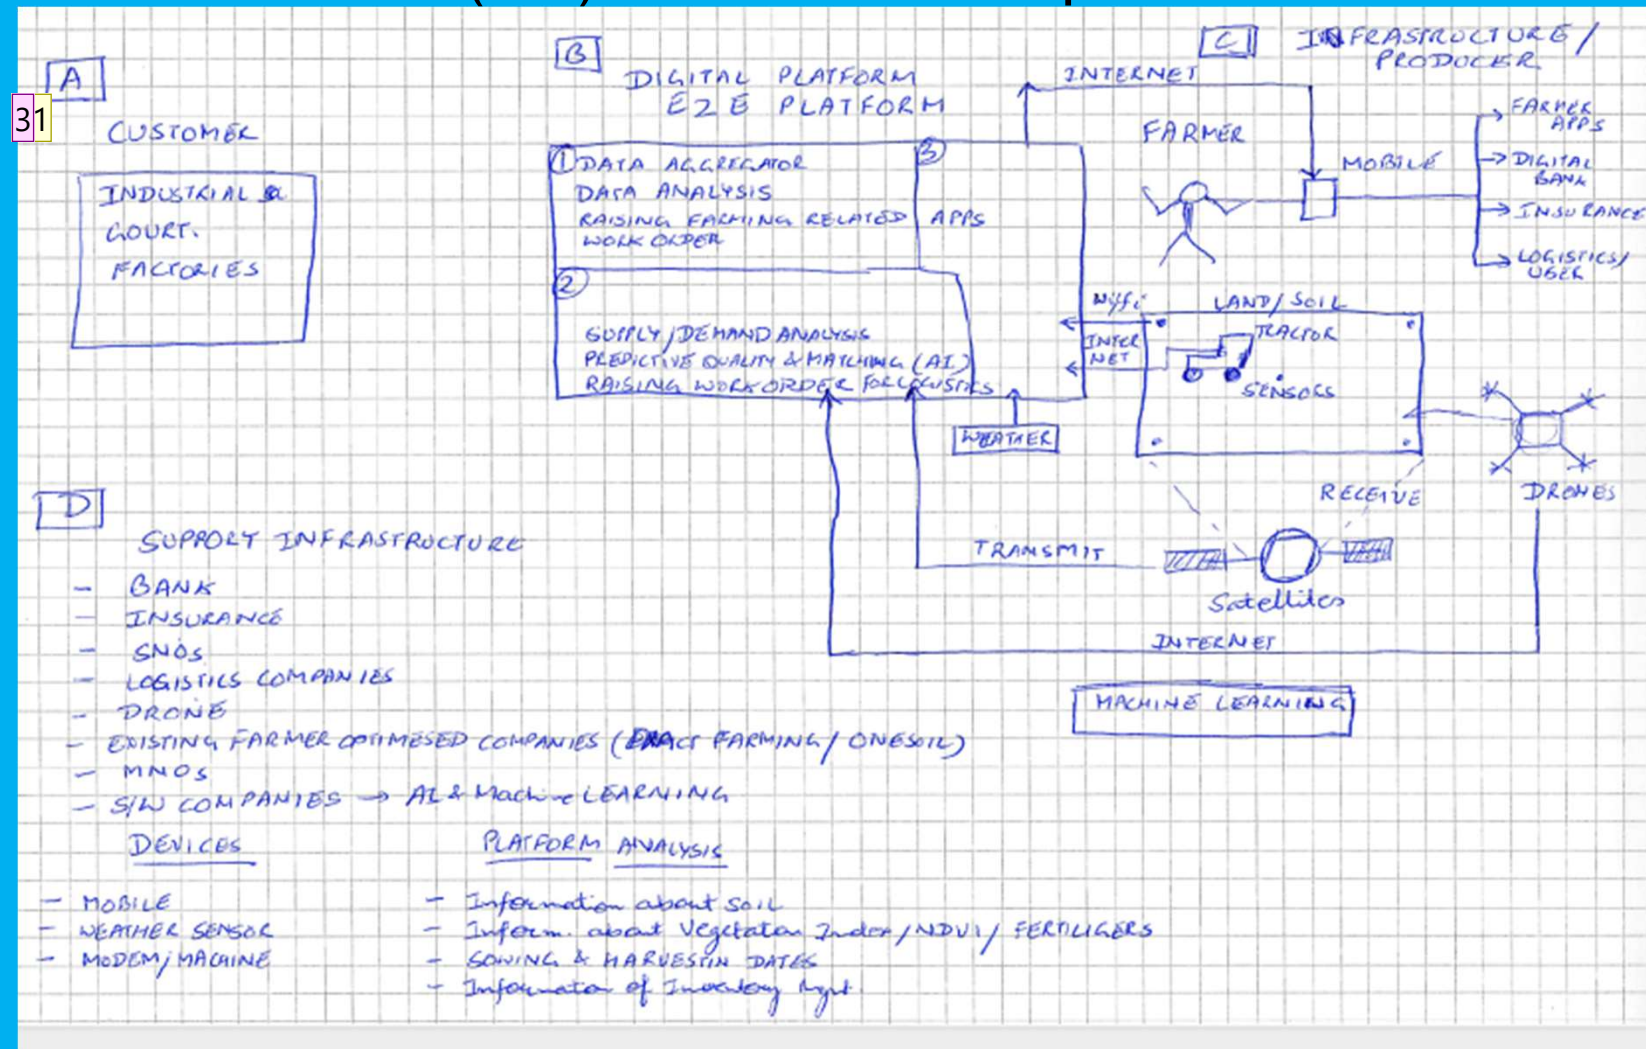 A
31
CUSTOMER
INDUSTRIAL &
GOURT.
FACTORIES
B
DIGITAL PLATFORM
E2E PLATFORM
1 DATA AGGREGATOR
DATA ANALYSIS
RAISING FARMING RELATED
WORK ORDER
3
APPS
2
SUPPLY/DEMAND ANALYSIS
PREDICTIVE QUALITY & MATCHING (AI)
RAISING WORK ORDER FOR LOGISTICS
WEATHER
C
INFRASTRUCTURE/
PRODUCER
INTERNET
FARMER
MOBILE
FARMER
APPS
DIGITAL
BANK
INSURANCE
LOGISTICS/
UBER
LAND/SOIL
INTER
NET
TRACTOR
SENSORS
RECEIVE
DRONES
TRANSMIT
Satellites
INTERNET
MACHINE LEARNING
D
SUPPORT INFRASTRUCTURE
- BANK
- INSURANCE
- SNOS
- LOGISTICS COMPANIES
- DRONE
- EXISTING FARMER OPTIMESED COMPANIES (EXACT FARMING/ONESOIL)
- MNOS
- S/W COMPANIES → AI & Machine LEARNING
DEVICES
- MOBILE
- WEATHER SENSOR
- MODEM/MACHINE
PLATFORM ANALYSIS
- Information about SOIL
- Inform. about Vegetation Index/NDVI/ FERTILIGERS
- SOWING & HARVESTIN DATES
- Information of Inventory Mgmt.